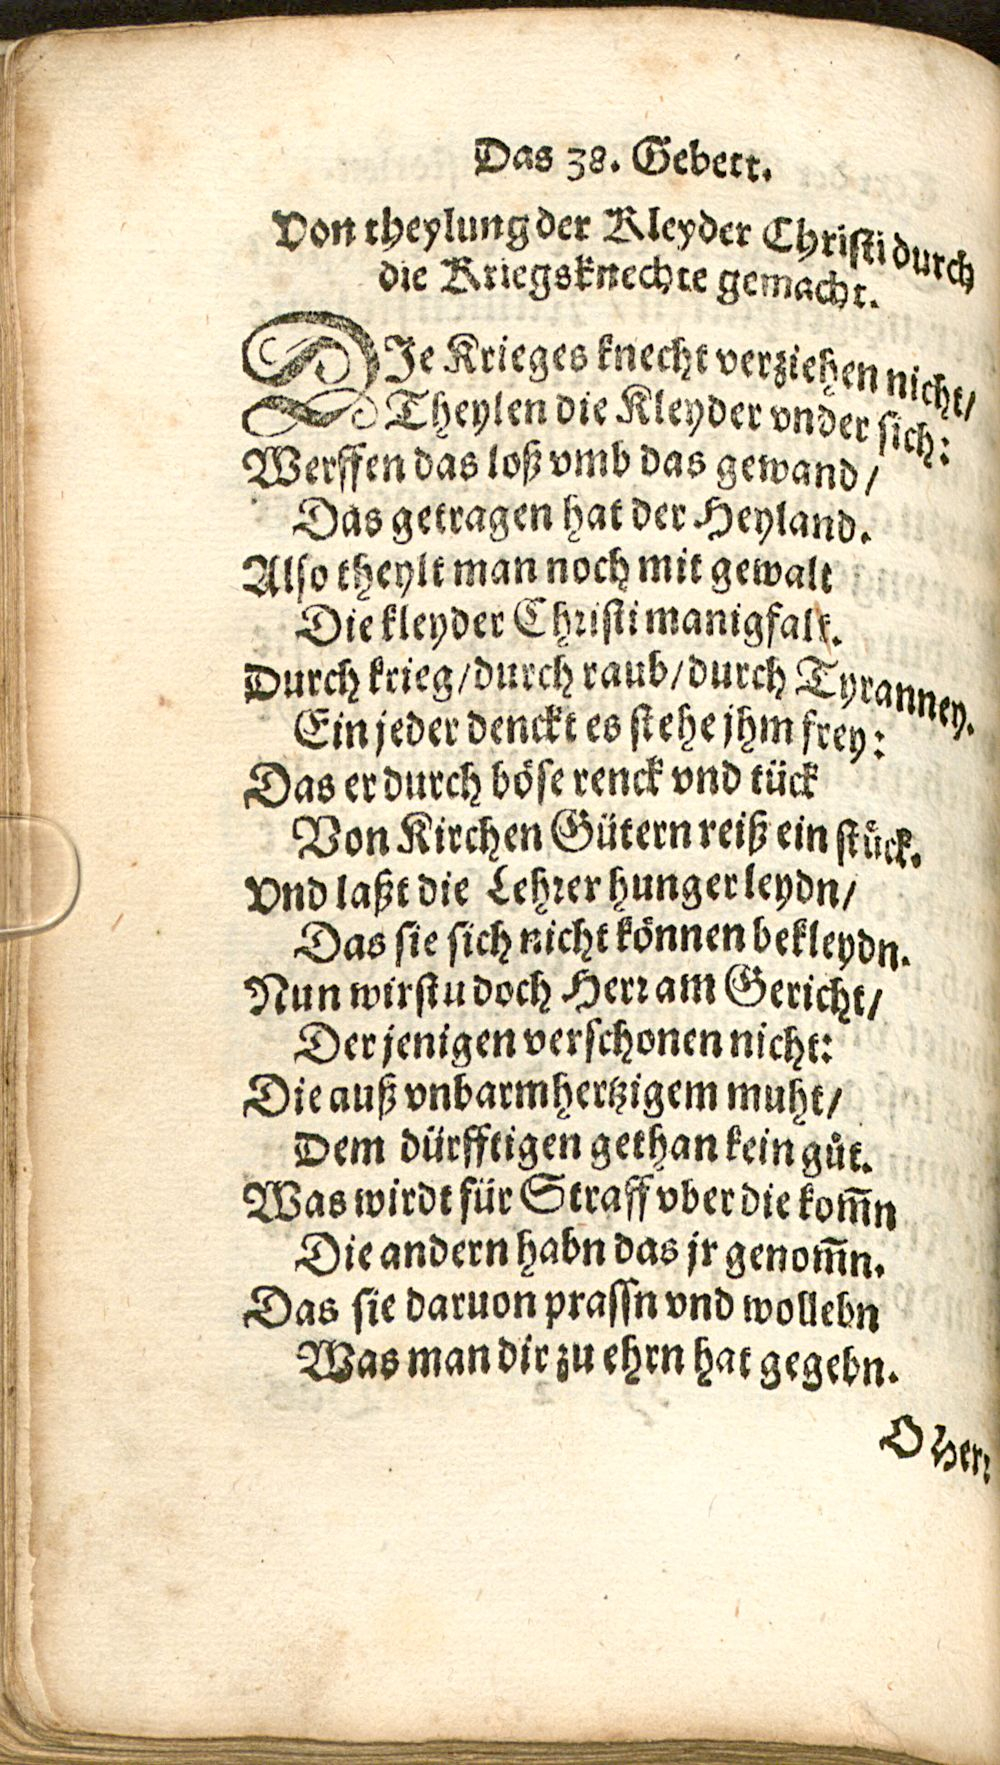 Das 38. Gebett.
Von theylung der Kleyder Christi durch
die Kriegsknechte gemacht.
DIe Krieges knecht verziehen nicht/
Theylen die Kleyder vnder sich:
Werffen das loß vmb das gewand/
Das getragen hat der Heyland.
Also theylt man noch mit gewalt
Die kleyder Christi manigfalt.
Durch krieg/durch raub/durch Tyranney.
Ein jeder denckt es stehe jhm frey:
Das er durch böse renck vnd tück
Von Kirchen Gütern reiß ein stück.
Vnd laßt die Lehrer hunger leydn/
Das sie sich nicht können bekleydn.
Nun wirstu doch Herr am Gericht/
Der jenigen verschonen nicht:
Die auß vnbarmhertzigem muht/
Dem dürfftigen gethan kein gůt.
Was wirdt für Straff vber die kom̄n
Die andern habn das jr genom̄n.
Das sie daruon prassn vnd wollebn
Was man dir zu ehrn hat gegebn.
O Herr